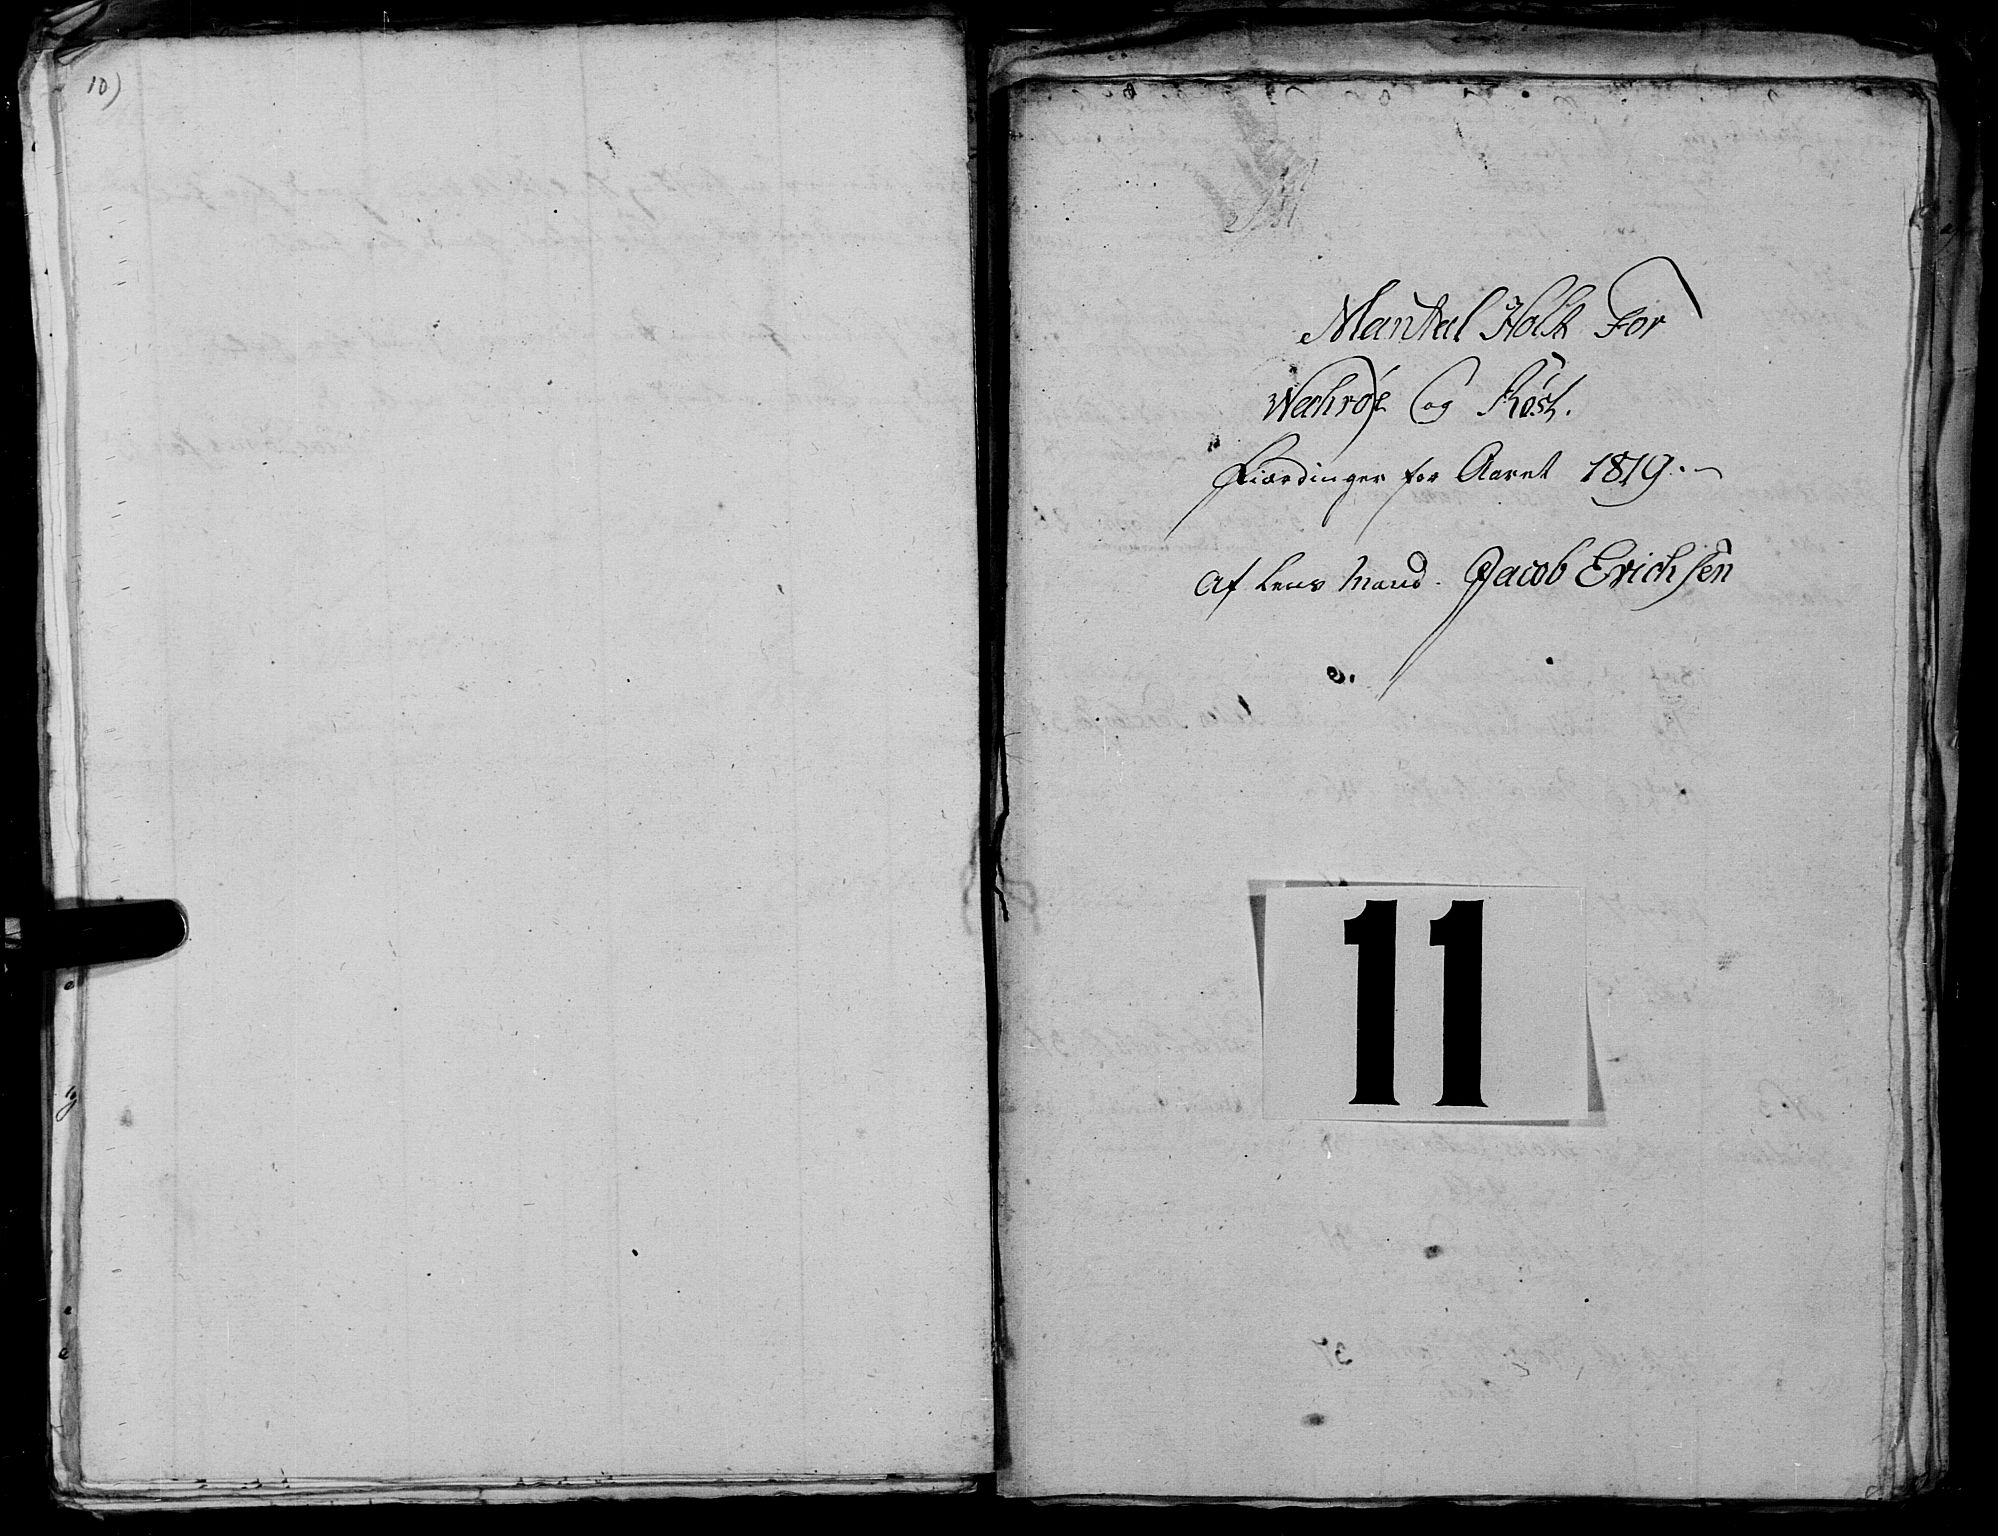 10)
Mantal Holt For
Wechrøe Og Røst.
Fiærdinger for Aaret 1819.
Af Lens Mand. Jacob Erichsen
11